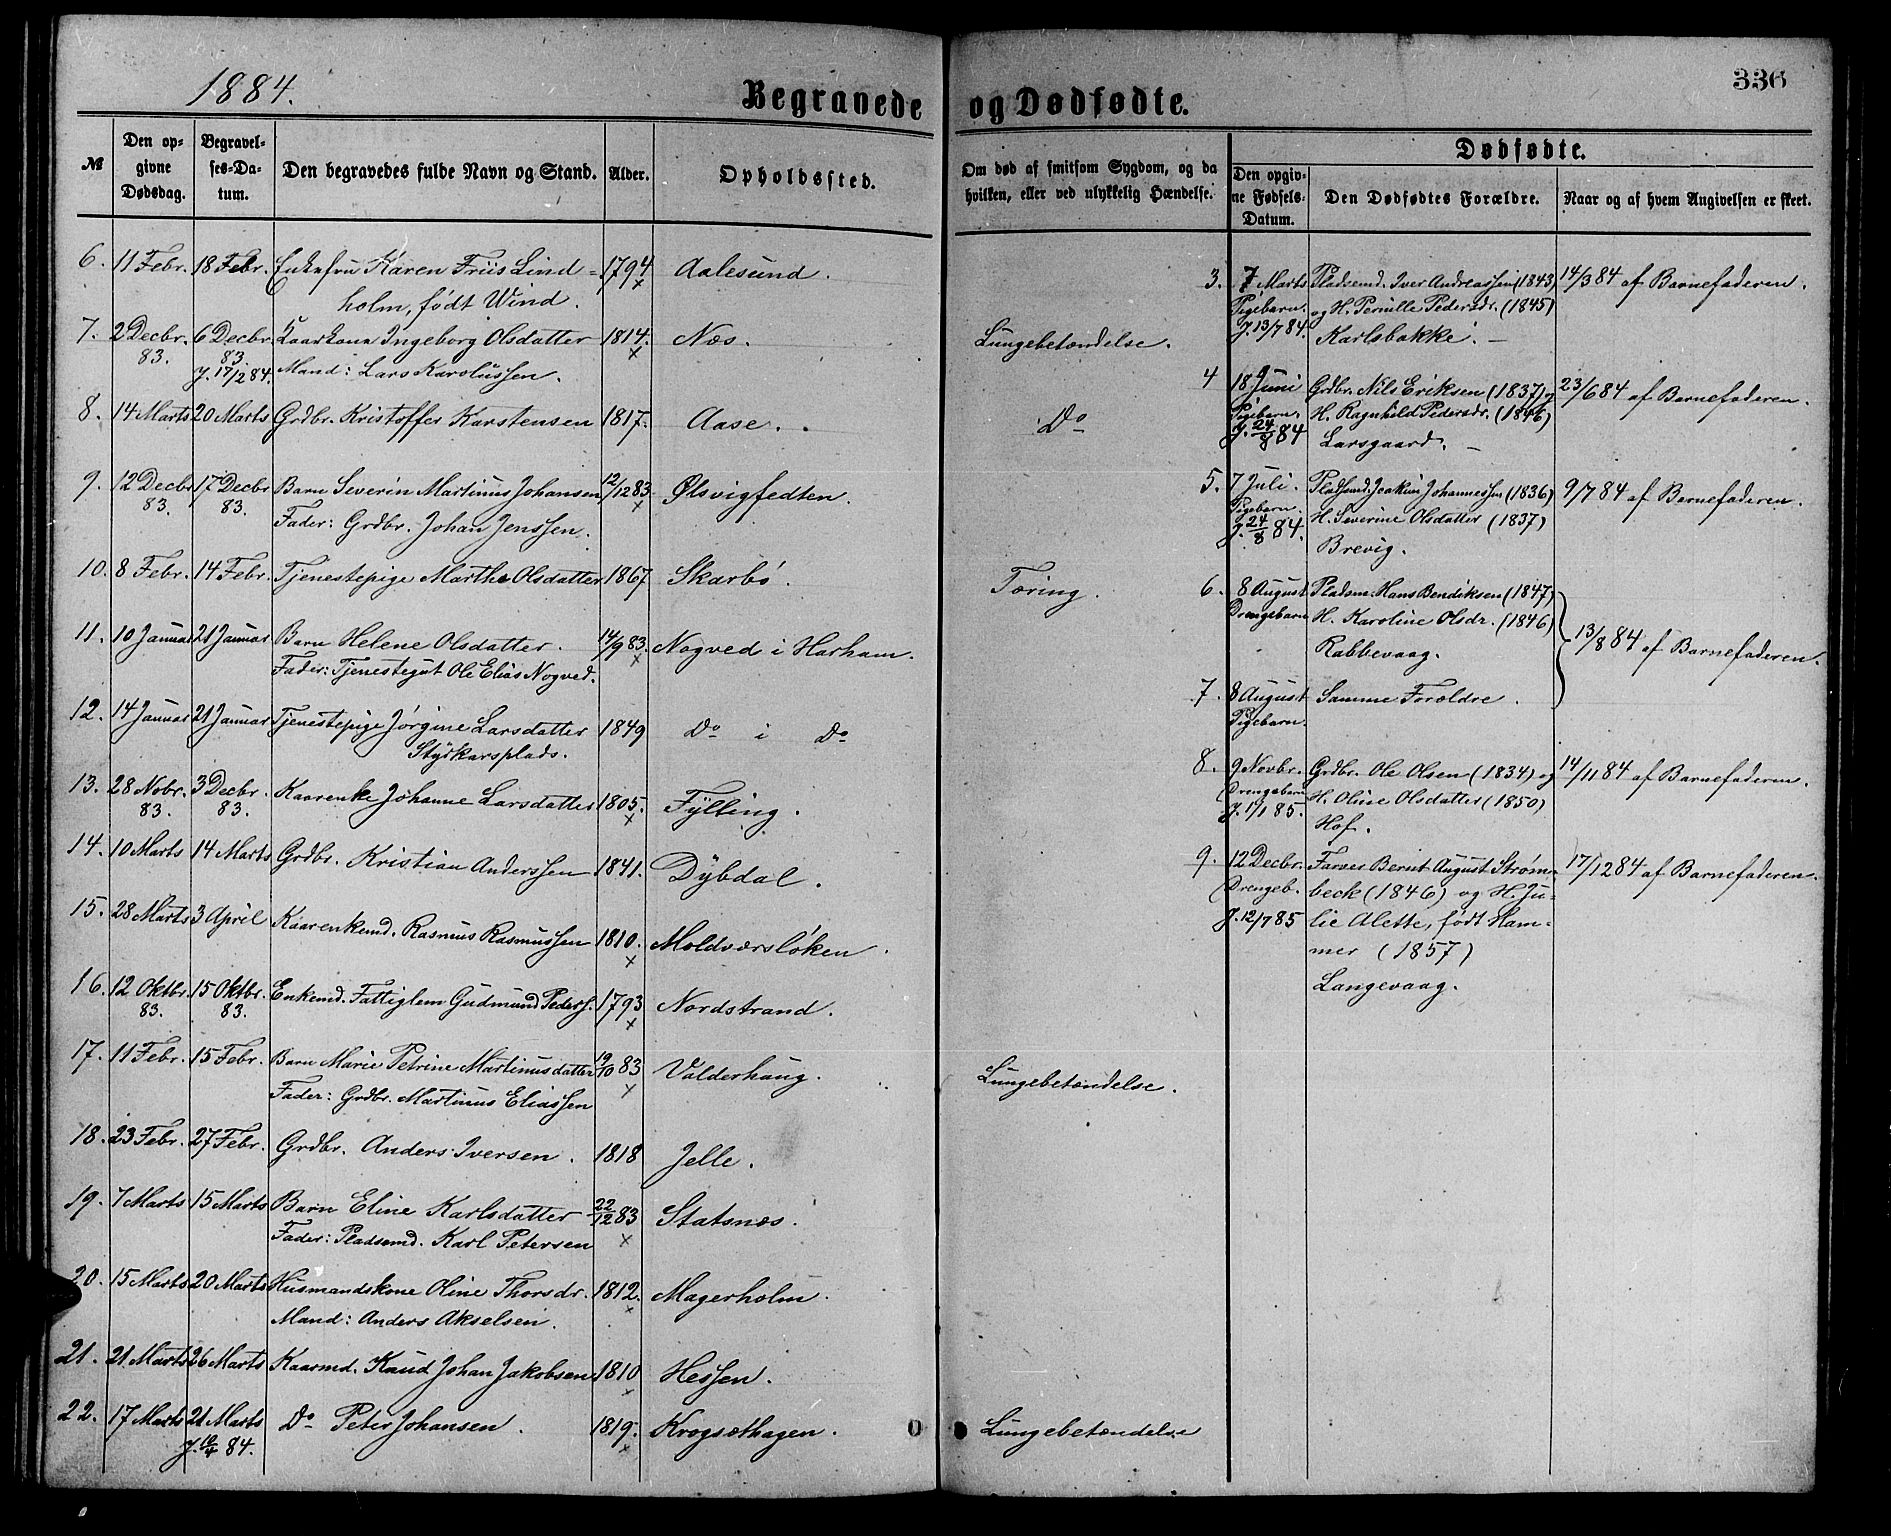 1884.
Begravede
№
Den opgivne Dødsdag.
Begravelses-Datum.
Den begravedes fulde Navn og Stand.
Alder.
Opholdssted.
6. 11 Febr. 18 Febr. Enkefru Karen Friis Lind= 1794 Aalesund.
× holm, født Wind.
7. 2 Decbr. 6 Decbr. Kaarkona Ingeborg Olsdatter 1814. Næs.
83. 83. ×
J. 17/2 84. Mand: Lars Karolussen.
8. 14 Marts 20 Marts Grdbr. Kristoffer Karstensen 1817. Aase.
9. 12 Decbr 17 Decbr Barn Severin Martinus Johansen 12/12 83 Ølsvigfedten.
83. 83. Fader: Grdbr. Johan Jenssen. ×
10. 8 Febr. 14 Febr. Tjenestepige Marthe Olsdatter 1867. Skarbø.
11. 10 Januar 21 Januar Barn Helene Olsdatter. 14/9 83. Nogved i Harham.
Fader: Tjenestegut Ole Elias Nogved. ×
12. 14 Januar 21 Januar Tjenestepige Jørgine Larsdatter 1849 Do i Do
Stydkarsplads.
13. 28 Nobr. 3 Decbr. Kaarenke Johanne Larsdatter 1805. Fylling.
83. 83. ×
14. 10 Marts 14 Marts Grdbr. Kristian Anderssen 1841. Dybdal.
15. 28 Marts 3 April Kaarenkemd. Rasmus Rasmussen 1810. Moldværsløken
×
16. 12 Oktbr. 15 Oktbr. Enkemd. Fattiglem Gudmund Peders. 1793 Nordstrand.
83. 83. ×
17. 11 Febr. 15 Febr. Barn Marie Petrine Martinusdatter 19/10 83 Valderhaug.
Fader: Grdbr. Martinus Eliassen ×
18. 23 Febr. 27 Febr. Grdbr. Anders Iversen. 1818 Jelle.
19. 7 Marts 15 Marts Barn Eline Karlsdatter 22/12 83 Statsnes.
Fader: Pladsemd. Karl Petersen ×
20. 15 Marts 20 Marts Husmandskone Oline Thorsdr. 1812. Magerholm.
Mand: Anders Akselsen. ×
21. 21 Marts 26 Marts Kaarmd. Knud Johan Jakobsen 1810 Hessen.
×
22. 17 Marts 21 Marts Do Peter Johansen. 1819. Krogsæthagen.
J. 10/4 84. ×
336
og Dødfødte.
Om død af smitsom Sygdom, og da hvilken, eller ved ulykkelig Hændelse.
Dødfødte.
Den opgivne Fødsels-Datum.
Den Dødfødtes Forældre.
Naar og af hvem Angivelsen er skeet.
Lungebetændelse.
Do
Tæring.
Lungebetændelse.
Lungebetændelse
3. 7 Marts Pladsemd. Iver Andreassen (1843) 14/3 84 af Barnefaderen.
Pigebarn. og H. Pernille Pedersdr. (1845)
J. 13/7 84. Karlsbakke. –
4 18 Juni Grdbr. Nils Eriksen (1837) og 23/6 84 af Barnefaderen.
Pigebarn. H. Ragnhild Pedersdr. (1846)
J. 24/8 84 Larsgaard. –
5. 7 Juli. Pladsemd. Joakim Johannessen (1836) 9/7 84 af Barnefaderen.
Pigebarn. H. Severine Olsdatter (1837)
J. 24/8 84. Brevig.
6. 8 August Pladsm. Hans Bendiksen (1847)
Drengebarn H. Karoline Olsdr. (1846)
Rabbevaag. 13/8 84 af Barnefaderen.
7. 8 August Samme Forældre.
Pigebarn.
8. 9 Novbr. Grdbr. Ole Olsen (1834) og 14/11 84 af Barnefaderen.
Drengebarn H. Oline Olsdatter (1850)
J. 1/1 85. Hof.
9. 12 Decbr. Farver Bernt August Strøm= 17/12 84 af Barnefaderen.
Drengeb. beck (1846) og H. Ju-
J. 12/7 85 lie Alette, født Ham-
mer (1857)
Langevaag.